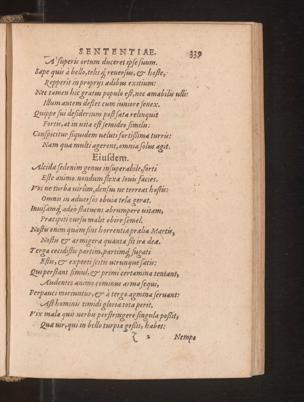 SENTENTIAE. 339
A' superis ortum duceret ipse suum.
Sæpe quis à bello, telisq́; reversus, & hoste,
Repperit in proprijs ædibus exitium:
Nec tamen hic gratus populo est, nec amabilis ulli:
Illum autem deflet cum iuniore senex.
Quippe sui desiderium post fata relinquit
Fortis, at in vita est semideo similis:
Conspicitur siquidem veluti fortissima turris:
Nam qua multi agerent, omnia solus agit.
Eiusdem.
Alcidæ sed enim genus insuperabile, forti
Este animo. nondum flexa Iovis facies.
Vis ne turba virûm, densus ne terreat hostis:
Omnis in adversos obvia tela gerat.
Invisamq́; adeo statuens abrumpere vitam,
Præcipiti cursu malit obire semel.
Nostis enim quàm sint horrentia prælia Martis,
Nostis & armigeræ quanta sit ira deæ.
Terga cecidistis partim, partimq́; fugati
Estis, & experti scitis utrunque satis:
Qui perstant simul, & primi certamina tentant,
Audentes animo cominus arma sequi,
Perpauci moriuntur, & à tergo agmina servant:
Ast hominis timidi gloria tota perit.
Vix mala quis verbis perstringere singula possit,
Quæ vir, qui in bello turpia gessit, habet:
2 Nempe